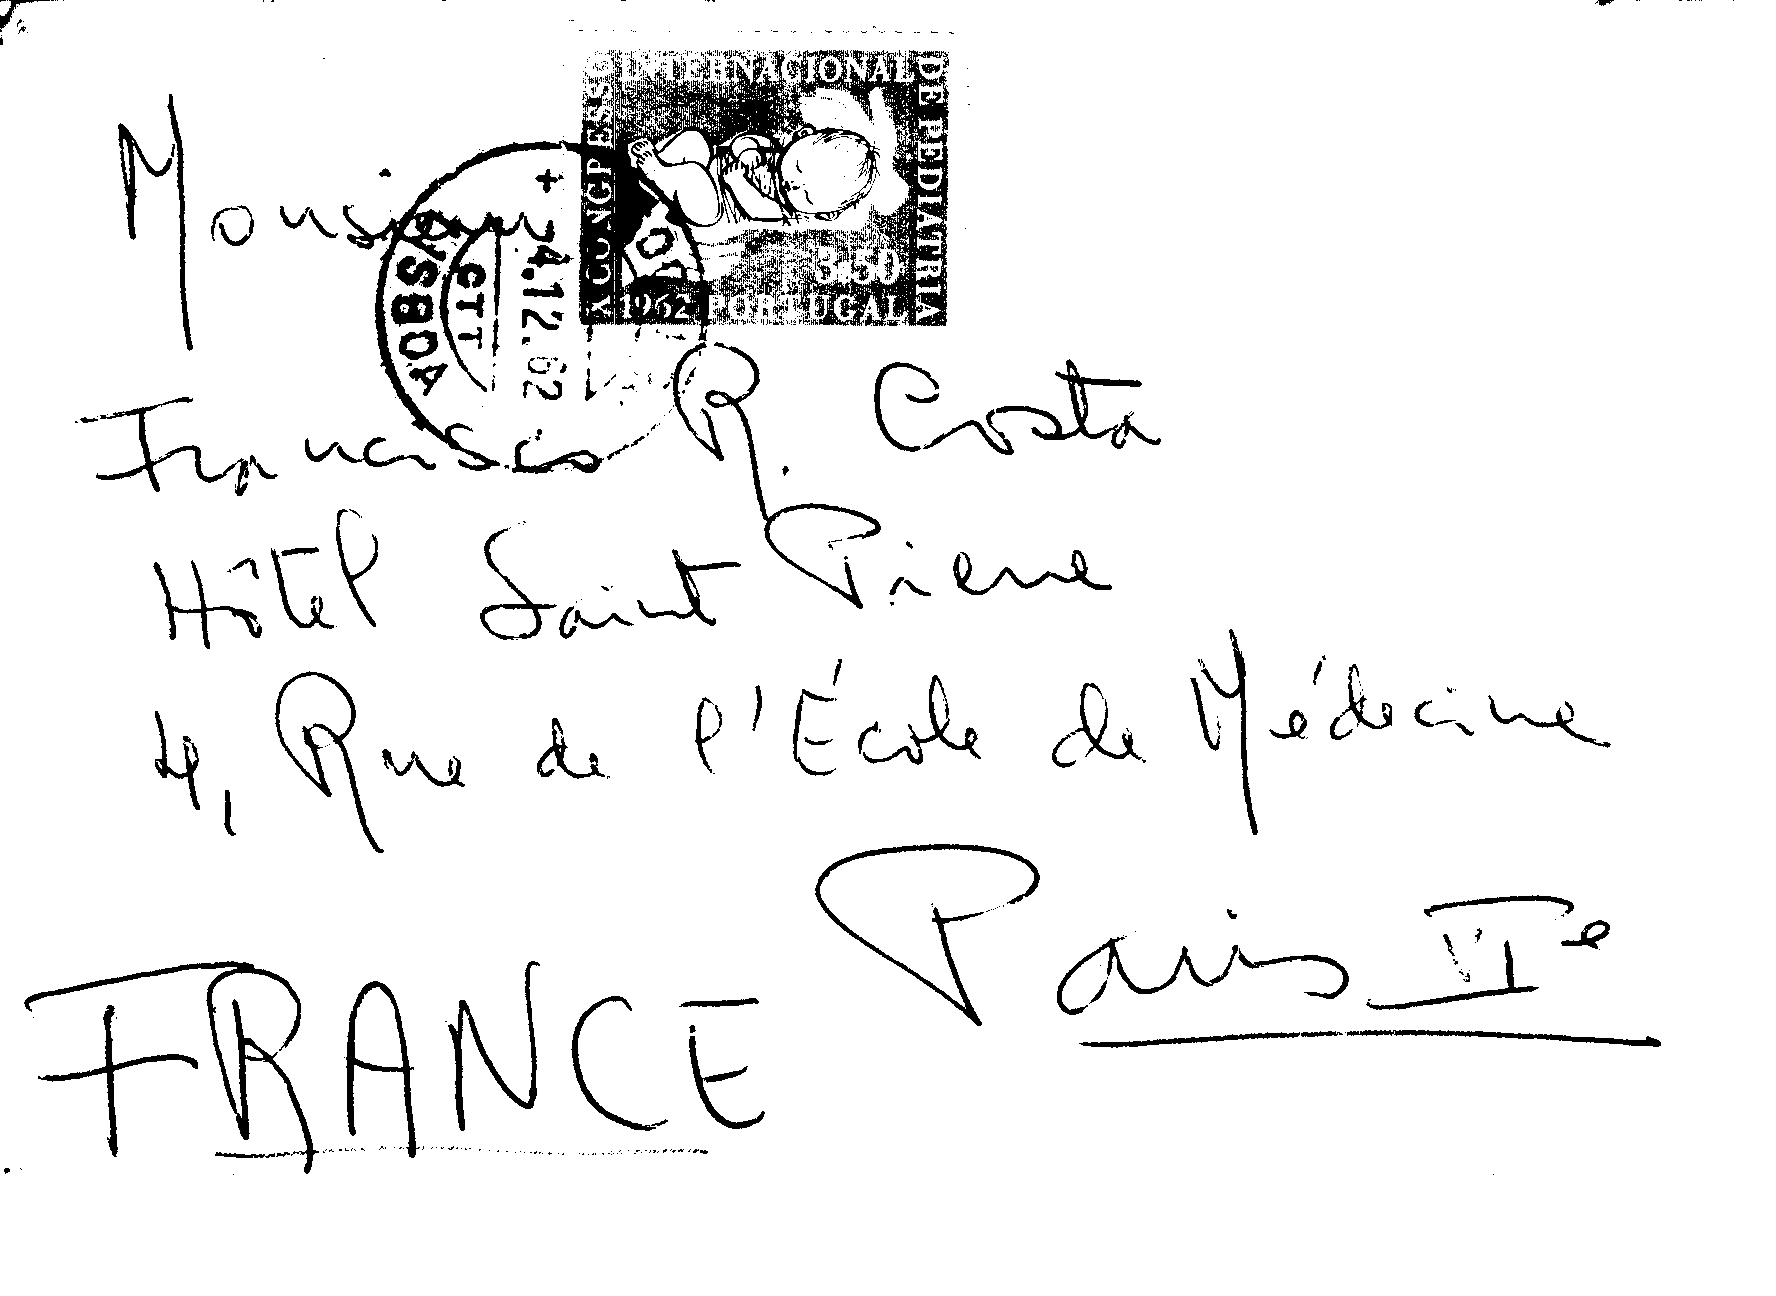 X CONGRESSO INTERNACIONAL DE PEDIATRIA
3$50
1962 PORTUGAL
LISBOA
CTT
4.12.62
Monsieur
Francisco R. Costa
Hôtel Saint Pierre
4, Rue de l'École de Médecine
Paris VIe
FRANCE